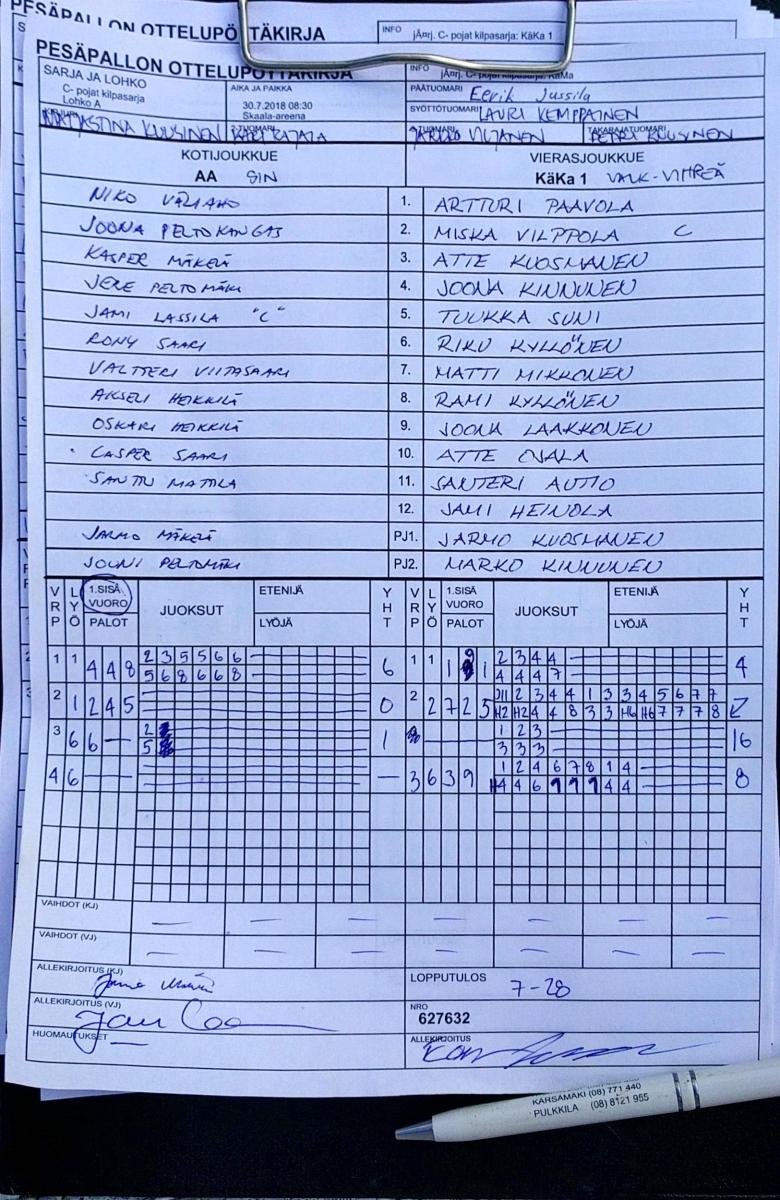 PESÄPALLON OTTELUPÖ TÄKIRJA
INFO jÄnrj. C- pojat kilpasarja: KäKa 1
PESÄPALLON OTTELUPÖYTÄKIRJA
INFO jÄnrj. C- pojat kilpasarja: KäMa
SARJA JA LOHKO
C- pojat kilpasarja
Lohko A
AIKA JA PAIKKA
30.7.2018 08:30
Skaala-areena
PÄÄTUOMARI Eerik Jussila
SYÖTTÖTUOMARI LAURI KEMPPAINEN
2-TUOMARI
TAKARAJATUOMARI
KOTIJOUKKUE
AA SIN
VIERASJOUKKUE
KäKa 1 VALK-VIHREÄ
NIKO 1. ARTTURI PAAVOLA
JOONA PELTOKANGAS 2. MISKA VILPPOLA C
KASPER MÄKELÄ 3. ATTE KUOSMANEN
JERE PELTOMÄKI 4. JOONA KINNUNEN
JAMI LASSILA "C" 5. TUUKKA SUNI
RONY SAARI 6. RIKU KYLLÖNEN
VALTTERI VIITASAARI 7. MATTI MIKKONEN
AKSELI HEIKKILÄ 8. RAMI KYLLÖNEN
OSKARI HEIKKILÄ 9. JOONA LAAKKONEN
CASPER SAARI 10. ATTE OJALA
SANTTU MATTILA 11. SANTERI AUTIO
12. JAMI HEINOLA
JARMO MÄKELÄ PJ1. JARMO KUOSMANEN
JOUNI PELTOMÄKI PJ2. MARKO KINNUNEN
VRP LYÖ 1.SISÄ VUORO PALOT JUOKSUT ETENIJÄ LYÖJÄ YHT VRP LYÖ 1.SISÄ VUORO PALOT JUOKSUT ETENIJÄ LYÖJÄ YHT
1 1 4 4 8 2 3 5 5 6 6 6 1 1 1 9 1 2 3 4 4 4
5 6 8 6 6 8 4 4 4 7
2 1 2 4 5 0 2 2 7 2 5 J11 2 3 4 4 1 3 3 4 5 6 7 7
H2 H2 4 4 8 3 3 H6 H6 7 7 7 8
3 6 6 — 2 1 1 2 3 16
5 3 3 3
4 6 — — — 3 6 3 9 1 2 4 6 7 8 1 4 8
H4 4 6 1 1 1 4 4
VAIHDOT (KJ) — — — — — — —
VAIHDOT (VJ) — — — — — — —
ALLEKIRJOITUS (KJ)
LOPPUTULOS 7-28
ALLEKIRJOITUS (VJ)
NRO
627632
HUOMAUTUKSET —
ALLEKIRJOITUS
KÄRSÄMÄKI (08) 771 440
PULKKILA (08) 8121 955